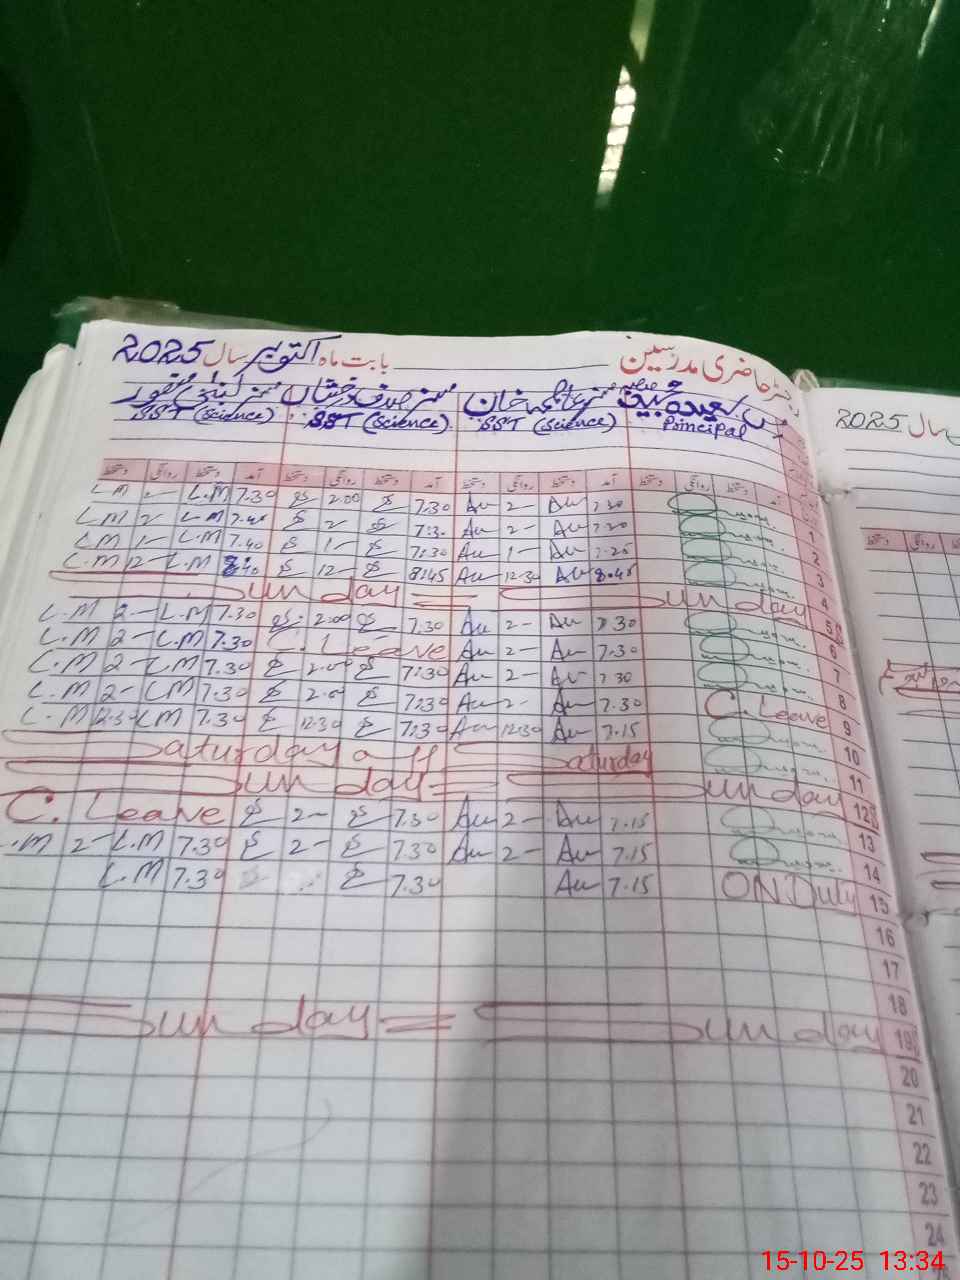 رجسٹر حاضری مدرسین بابت ماہ اکتوبر سال 2025
مس سعیدہ مسز خان مسز صدف درخشاں مسز
Principal SST (Science) SST (Science) SST (Science)
آمد دستخط روانگی دستخط آمد دستخط روانگی دستخط آمد دستخط روانگی دستخط آمد دستخط روانگی دستخط
L.M 2- L.M 7.30 2.00 7.30 Au 2- Au 7.30 1
L.M 2- L.M 7.40 2- 7.30 Au 2- Au 7.20 2
L.M 1- L.M 7.40 1- 7.30 Au 1- Au 7.25 3
L.M 12- L.M 8.40 12- 8.45 Au 12.30 Au 8.45 4
Sunday Sunday 5
L.M 2- L.M 7.30 2.00 7.30 Au 2- Au 7.30 6
L.M 2- L.M 7.30 C. Leave Au 2- Au 7.30 7
L.M 2- L.M 7.30 2.00 7.30 Au 2- Au 7.30 8
L.M 2- L.M 7.30 2.00 7.30 Au 2- Au 7.30 C. Leave 9
L.M 12.30 L.M 7.30 12.30 7.30 Au 12.30 Au 7.15 10
Saturday off Saturday 11
Sunday Sunday 12
C. Leave 2- 7.30 Au 2- Au 7.15 13
L.M 2- L.M 7.30 2- 7.30 Au 2- Au 7.15 14
L.M 7.30 7.30 Au 7.15 ON Duty 15
16
17
18
Sunday Sunday 19
20
21
22
23
24
سال 2025
15-10-25 13:34